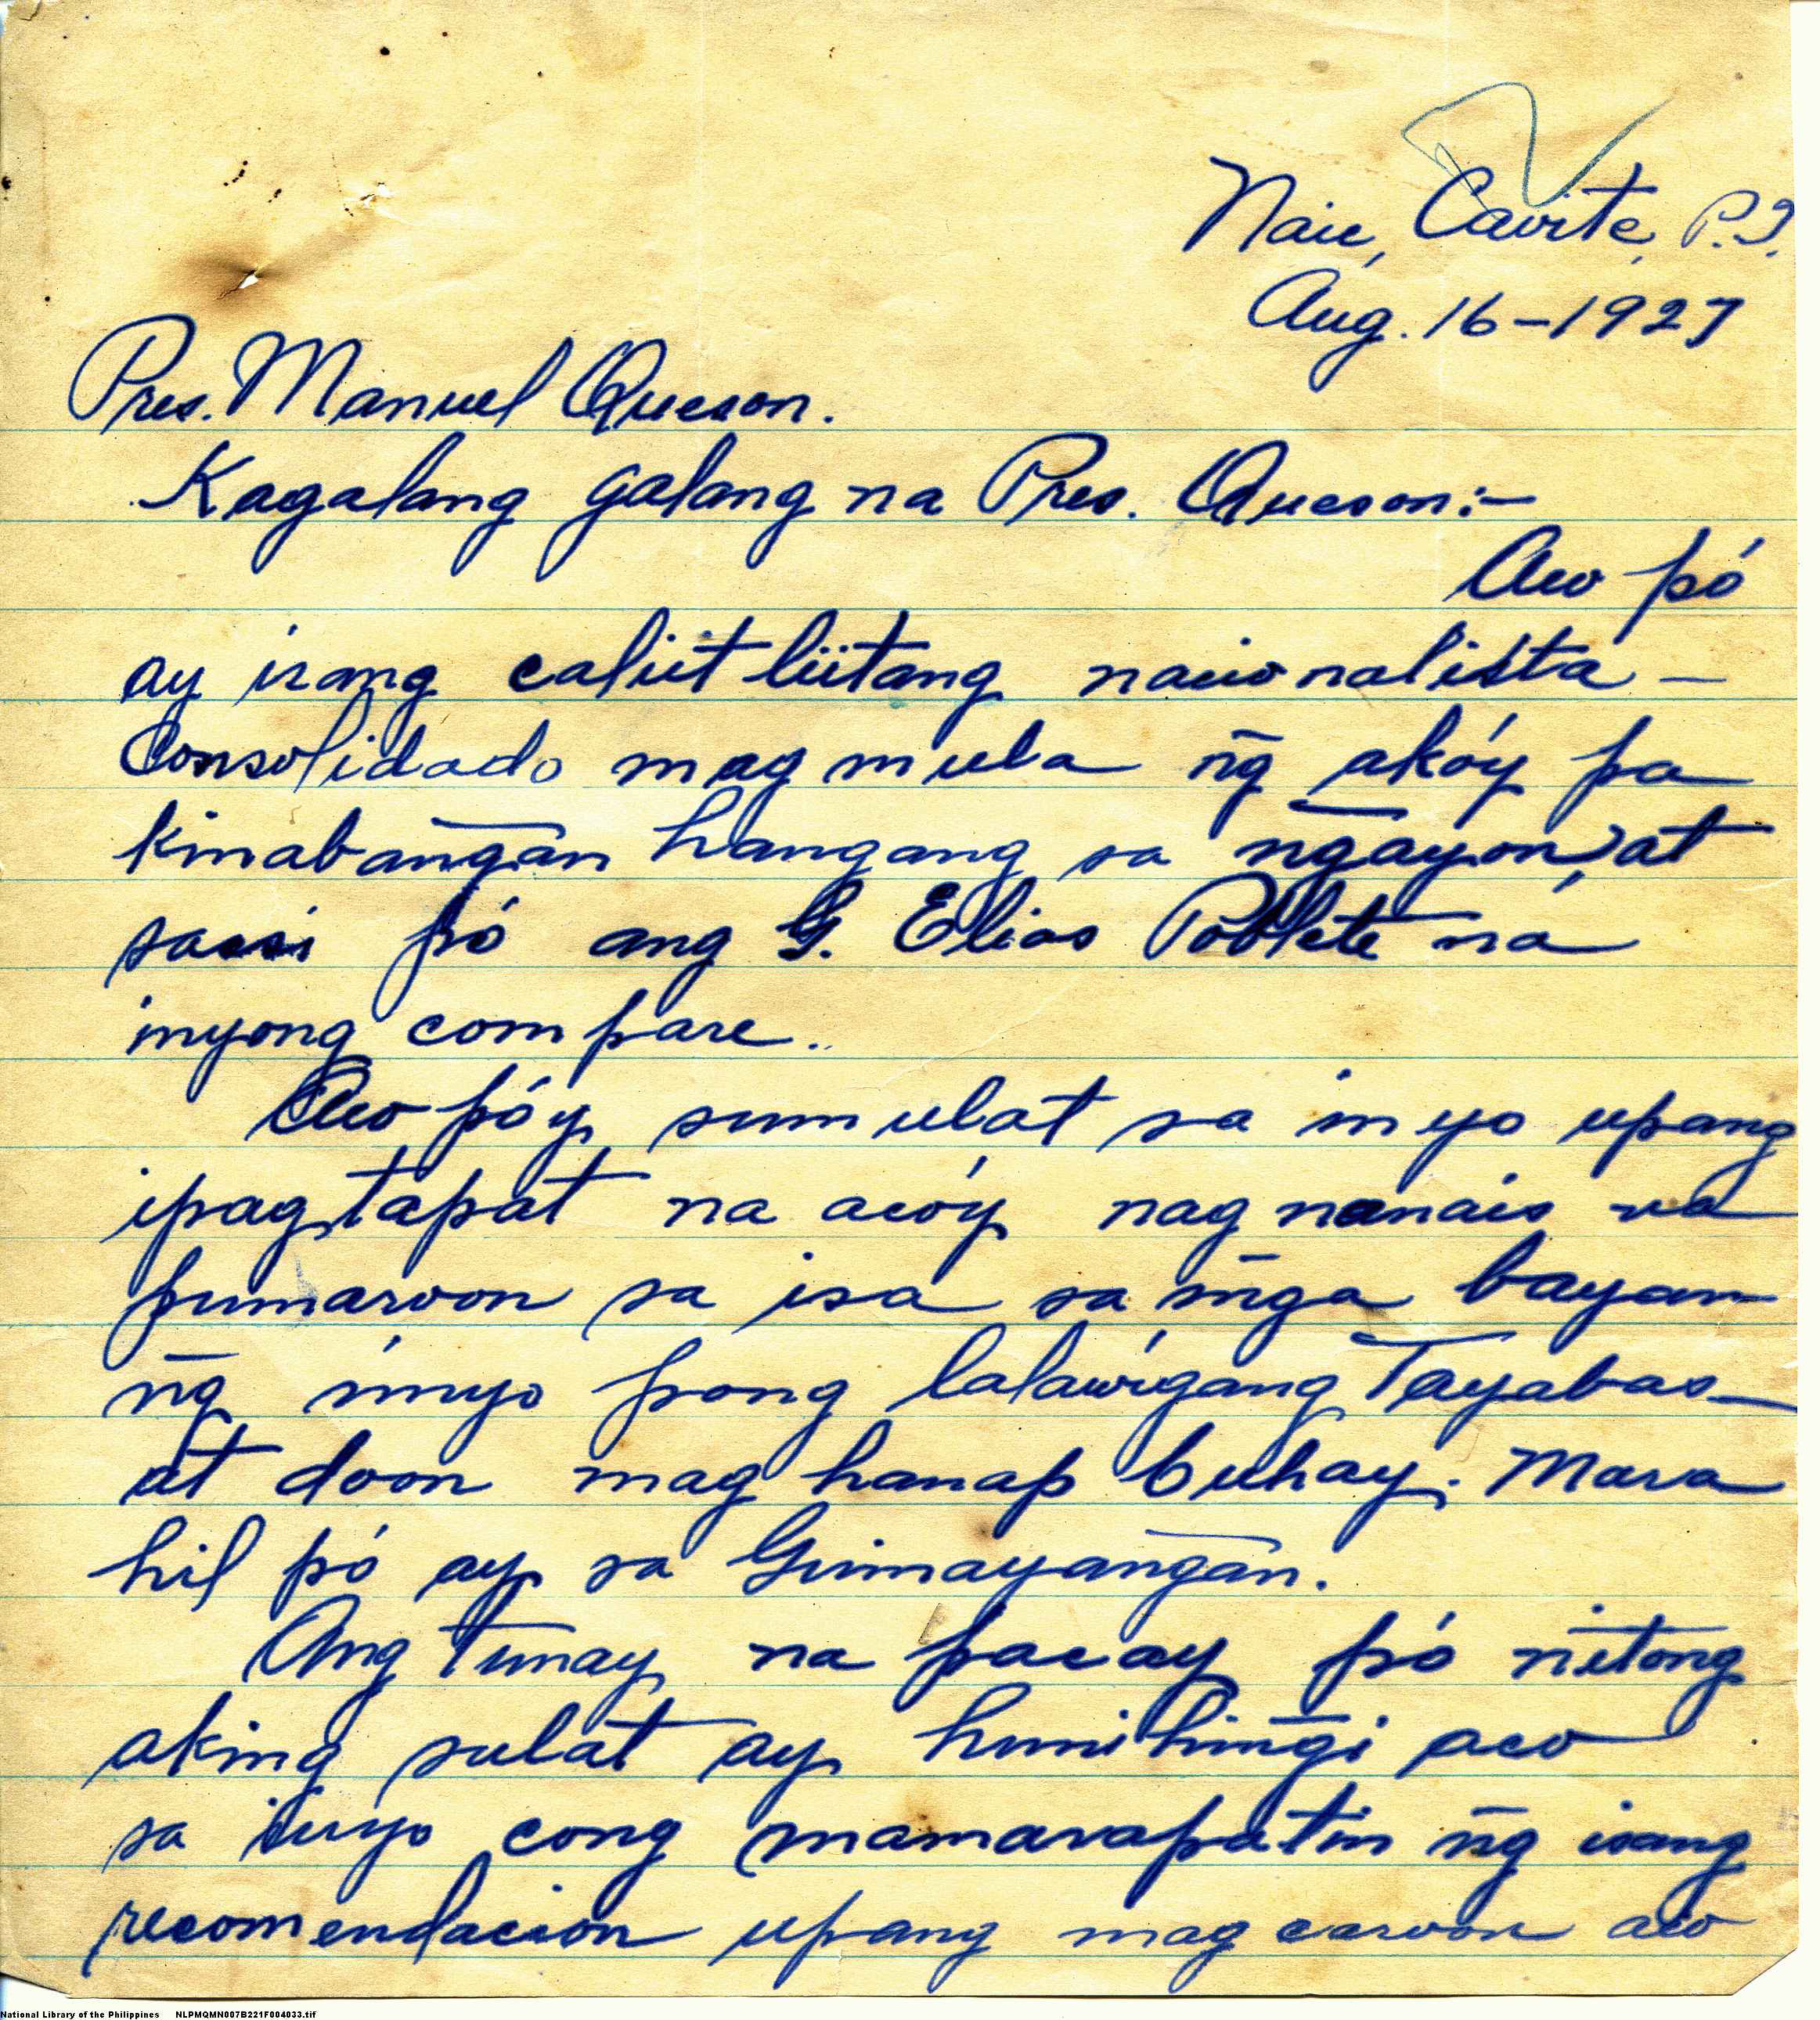 Naic, Cavite, P.I.
Aug. 16-1927
Pres. Manuel Queson.
Kagalang galang na Pres. Queson:-
Aco pó
ay isang caliit liitang nacionalista -
Consolidado mag mula n̄g akóy pa
kinaban̄gan hangang sa n̄gayon, at
sacsi pó ang G. Elias Poblete na
inyong compare.
Aco póy sumulat sa inyo upang
ipagtapat na acóy nag nanais na
pumaroon sa isa sa m̄ga bayan
n̄g inyo pong lalawigang Tayabas
at doon mag hanap buhay. Mara
hil pó ay sa Guinayan̄gan.
Ang tunay na pacay pó nitong
aking sulat ay humihin̄gi aco
sa inyo cong mamarapatin n̄g isang
recomendacion upang mag caroon aco
National Library of the Philippines NLPMQMN007B221F004033.tif